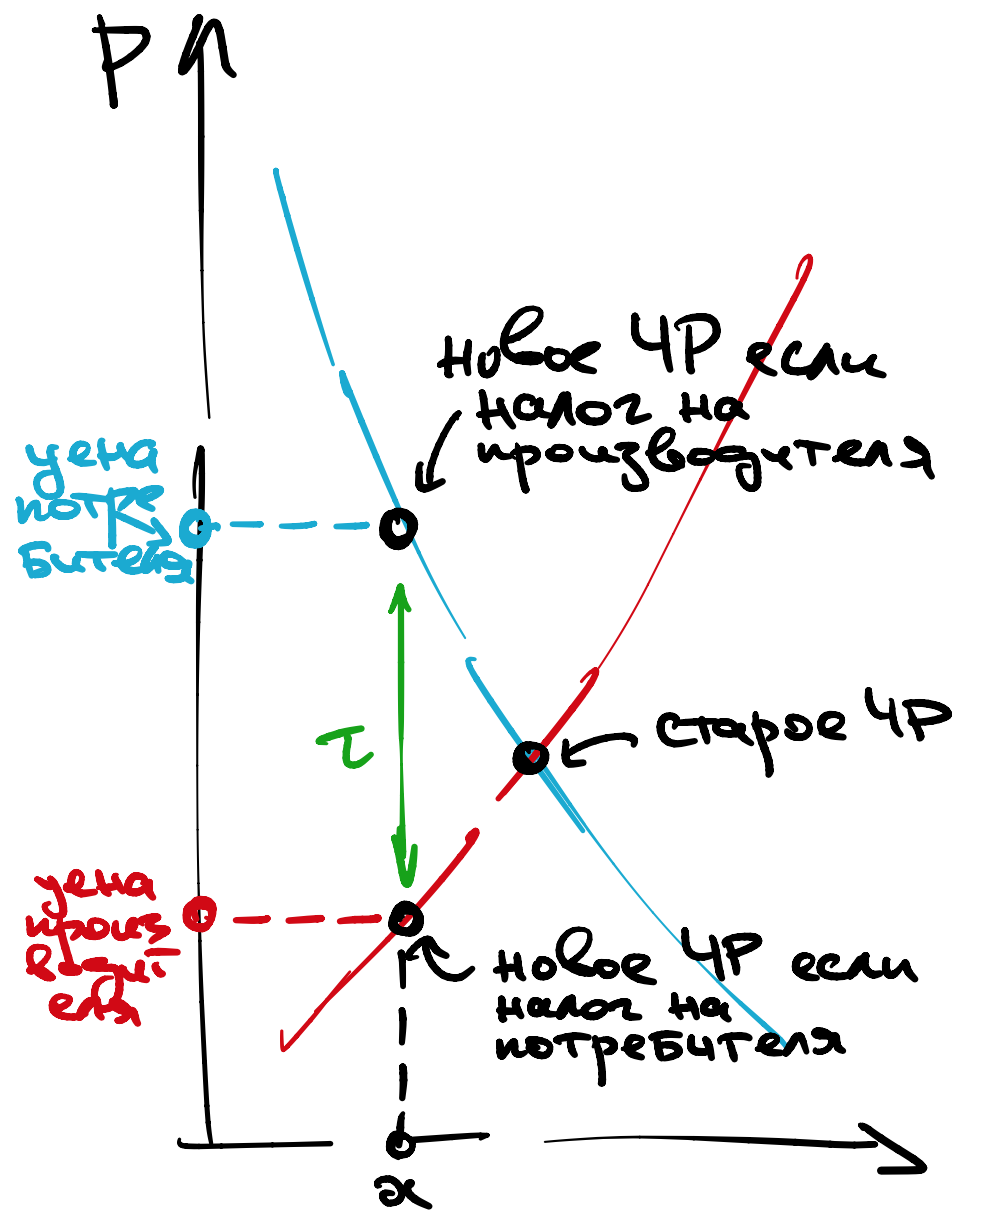 P
новое ЧР если
налог на
производителя
цена
потре
бителя
τ
старое ЧР
цена
произ
водит
еля
новое ЧР если
налог на
потребителя
x